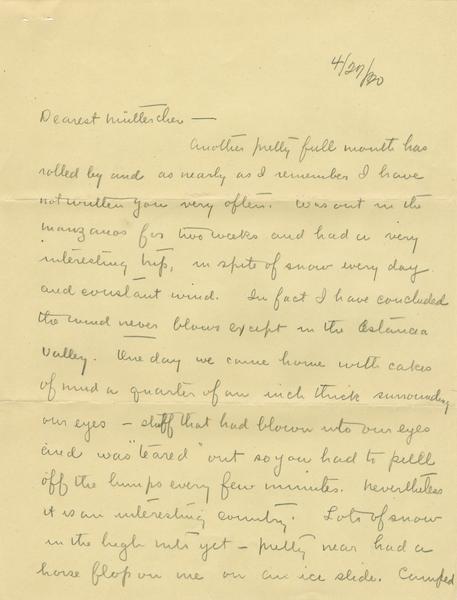 4/27/20
Dearest Mütterchen —
Another pretty full month has
rolled by and as nearly as I remember I have
not written you very often. Was out in the
Manzanos for two weeks and had a very
interesting trip, in spite of snow every day
and constant wind. In fact I have concluded
the wind never blows except in the Estancia
Valley. One day we came home with cakes
of mud a quarter of an inch thick surrounding
our eyes — stuff that had blown into our eyes
and was "teared" out so you had to pull
off the lumps every few minutes. Nevertheless
it is an interesting country. Lots of snow
in the high mts yet — pretty near had a
horse flop on me on an ice slide. Camped